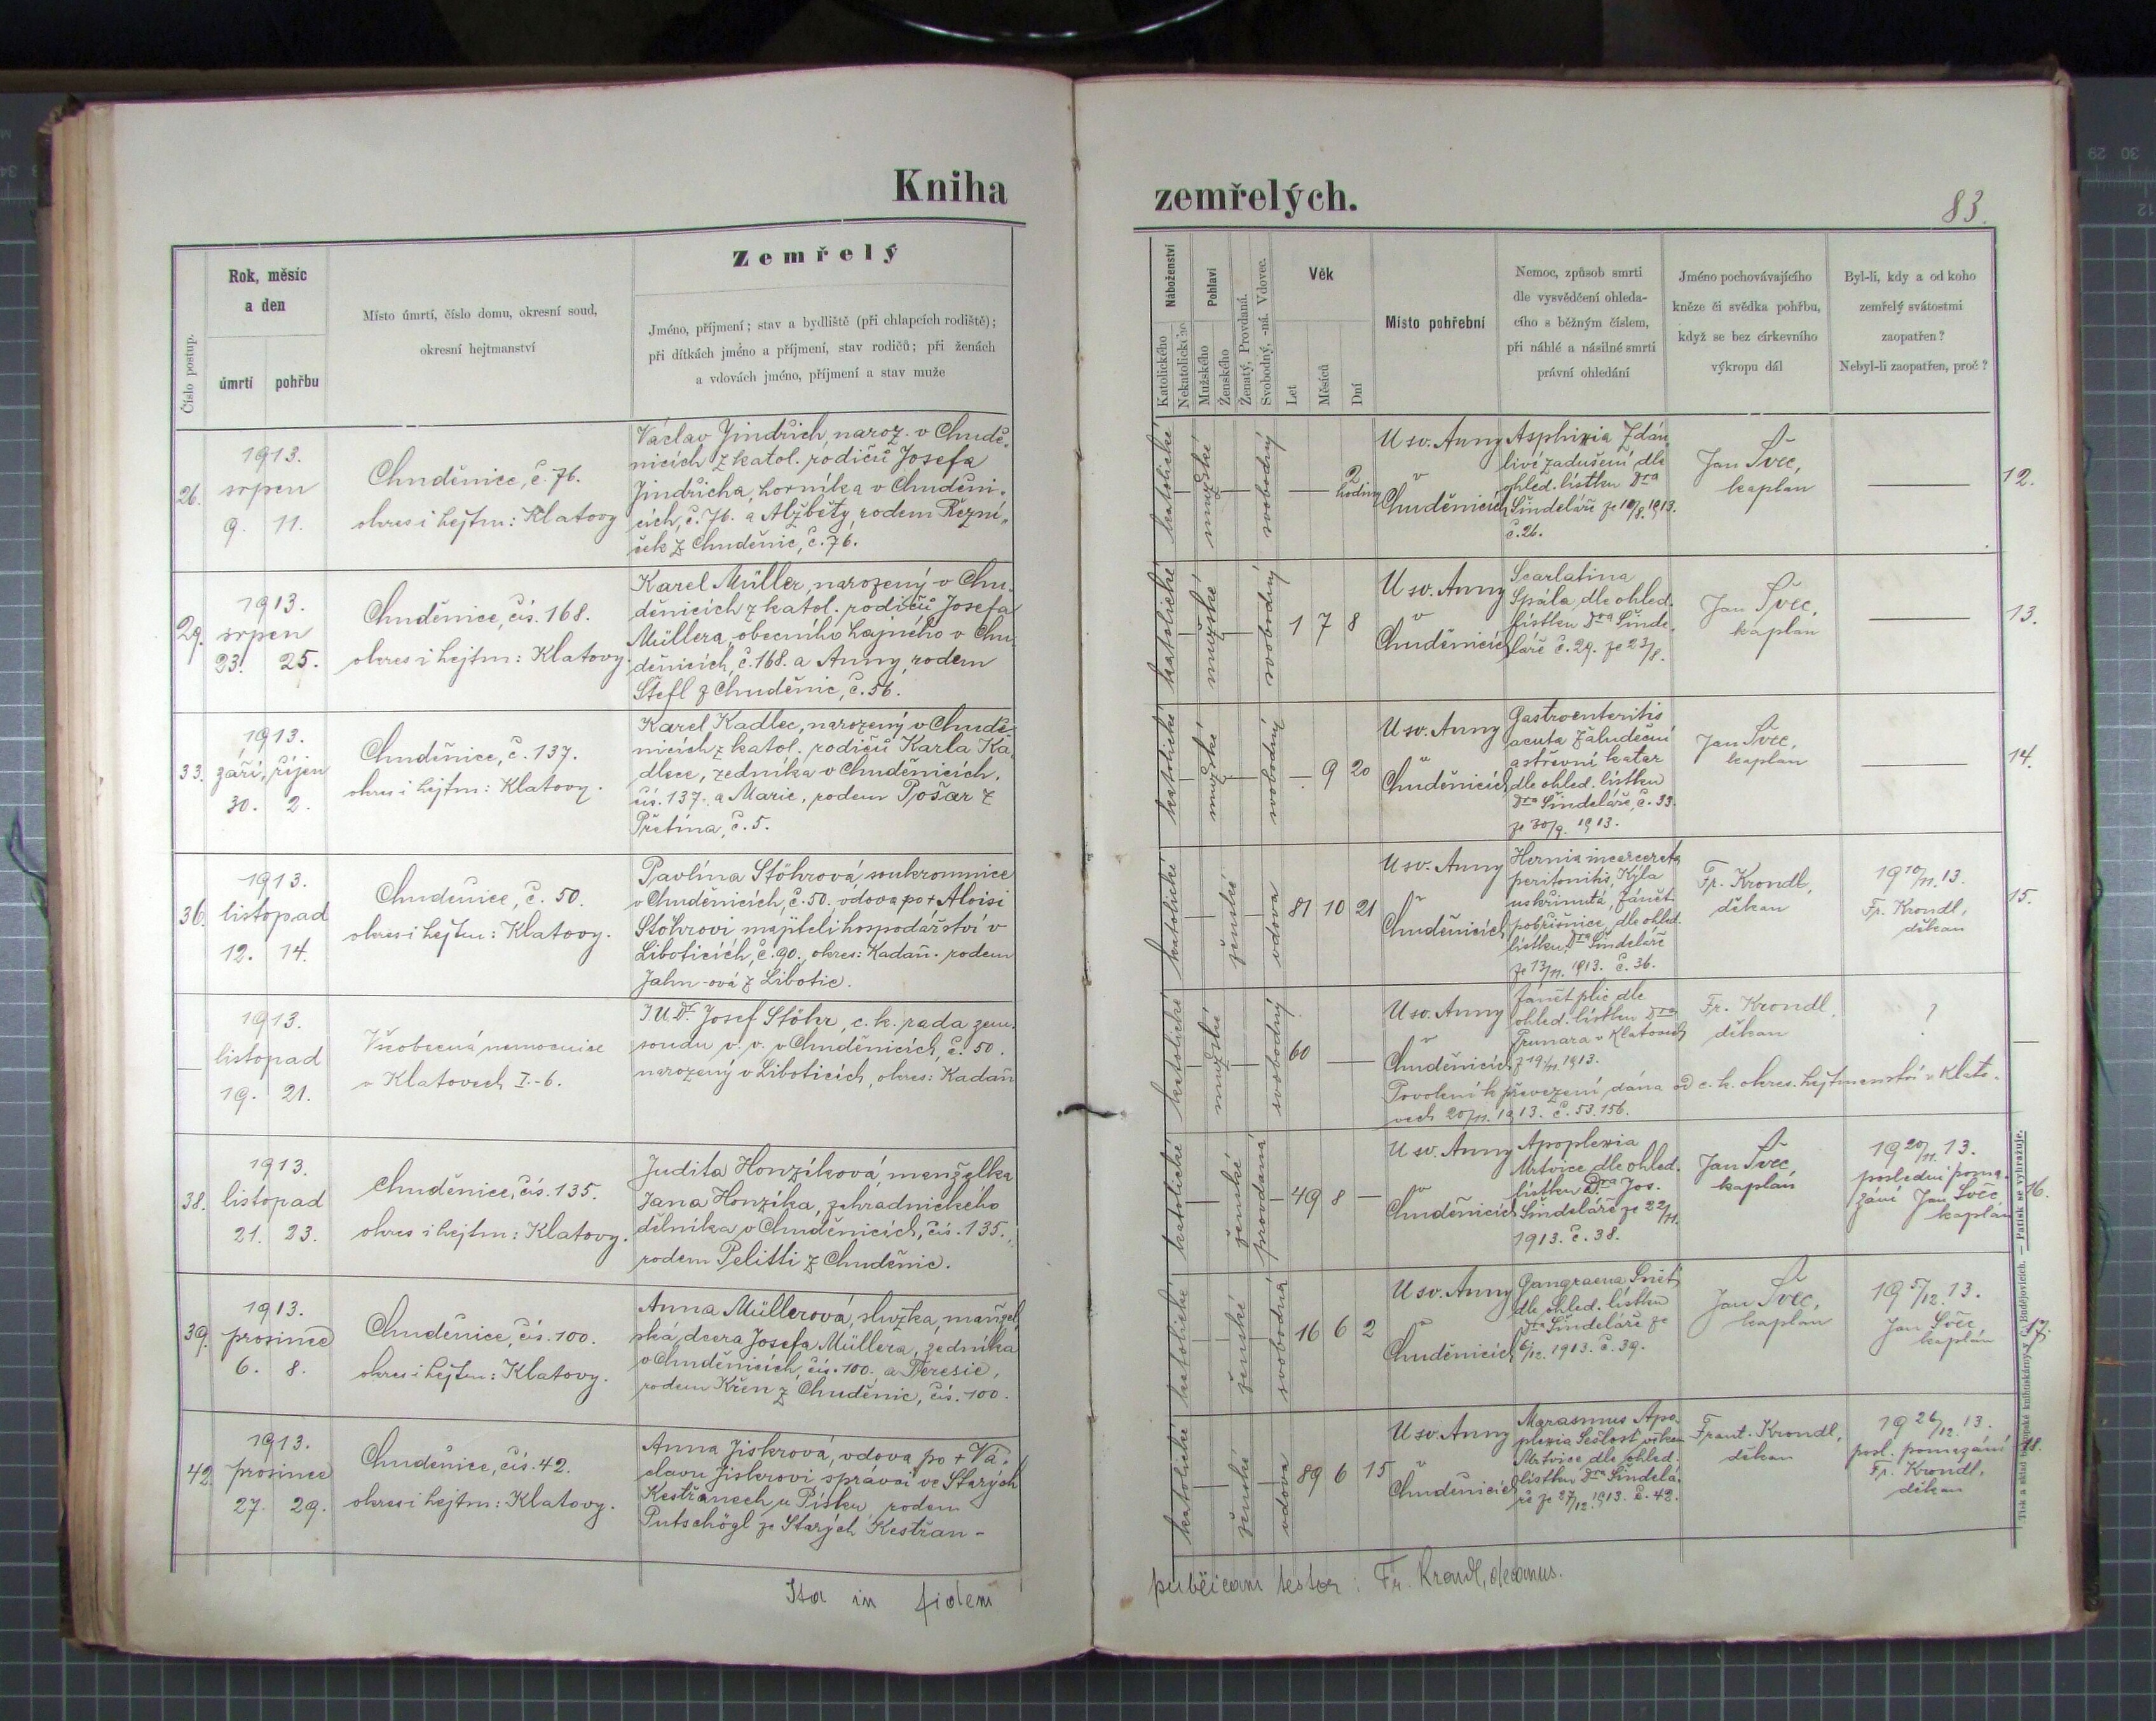 Kniha
zemřelých.
83.
Číslo postup.
Rok, měsíc
a den
úmrtí
pohřbu
Místo úmrtí, číslo domu, okresní soud,
okresní hejtmanství
Zemřelý
Jméno, příjmení; stav a bydliště (při chlapcích rodiště);
při dítkách jméno a příjmení, stav rodičů; při ženách
a vdovách jméno, příjmení a stav muže
Náboženství
Katolického
Nekatolického
Pohlaví
Mužského
Ženského
Ženatý, Provdaná.
Svobodný, -ná. Vdovec.
Věk
Let
Měsíců
Dní
Místo pohřební
Nemoc, způsob smrti
dle vysvědčení ohleda-
cího s běžným číslem,
při náhlé a násilné smrti
právní ohledání
Jméno pochovávajícího
kněze či svědka pohřbu,
když se bez církevního
výkropu dál
Byl-li, kdy a od koho
zemřelý svátostmi
zaopatřen?
Nebyl-li zaopatřen, proč?
26.
1913.
srpen
9. 11.
Chuděnice, č. 76.
okres i hejtm: Klatovy
Václav Jindřich, naroz. v Chudě-
nicích z katol. rodičů Josefa
Jindřicha, horníka v Chuděni-
cích, č. 76. a Alžběty, rodem Řezní-
ček z Chuděnic, č. 76.
katolické
mužské
svobodný
2
hodiny
U sv. Anny
v
Chuděnicích
Asphixia Zdán-
livé zadušení dle
ohled. lístku Dra
Šindeláře ze 10/8. 1913.
č. 26.
Jan Švec,
kaplan
12.
29.
1913.
srpen
23. 25.
Chuděnice, čís. 168.
okres i hejtm: Klatovy.
Karel Müller, narozený v Chu-
děnicích z katol. rodičů Josefa
Müllera, obecního hajného v Chu-
děnicích, č. 168. a Anny, rodem
Štefl z Chuděnic, č. 56.
katolické
mužské
svobodný
1 7 8
U sv. Anny
v
Chuděnicích
Scarlatina
Spála dle ohled.
lístku Dra Šinde-
láře č. 29. ze 23/8.
Jan Švec,
kaplan
13.
33.
1913.
září, říjen
30. 2.
Chuděnice, č. 137.
okres i hejtm: Klatovy.
Karel Kadlec, narozený v Chudě-
nicích z katol. rodičů Karla Ka-
dlece, zedníka v Chuděnicích,
čís. 137. a Marie, rodem Pošar z
Přetína, č. 5.
katolické
mužské
svobodný
9 20
U sv. Anny
v
Chuděnicích
Gastroenteritis
acuta Žaludeční
a střevní katar
dle ohled. lístku
Dra Šindeláře, č. 33.
ze 30/9. 1913.
Jan Švec,
kaplan
14.
36.
1913.
listopad
12. 14.
Chuděnice, č. 50.
okres i hejtm: Klatovy.
Pavlína Stöhrová, soukromnice
v Chuděnicích, č. 50. vdova po + Aloisi
Stöhrovi majiteli hospodářství v
Liboticích, č. 90., okres: Kadaň. rodem
Jahn-ová z Libotic.
katolické
ženské
vdova
81 10 21
U sv. Anny
v
Chuděnicích
Hernia incarcerata
peritonitis, Kýla
uskřinutá, zánět
pobřišnice, dle ohled.
lístku Dra Šindeláře
ze 13/11. 1913. č. 36.
Fr. Krondl,
děkan
19 10/11. 13.
Fr. Krondl,
děkan
15.
1913.
listopad
19. 21.
Všeobecná nemocnice
v Klatovech I.-6.
J.U.Dr. Josef Stöhr, c. k. rada zem.
soudu v. v. v Chuděnicích, č. 50.
narozený v Liboticích, okres: Kadaň
katolické
mužské
svobodný
60
U sv. Anny
v
Chuděnicích
Zánět plic dle
ohled. lístku Dra
Prunara v Klatovech
z 19./11. 1913.
Fr. Krondl,
děkan
?
Povolení k převezení dána od c. k. okres. hejtmanství v Klato-
vech 20/11. 1913. č. 53.156.
38.
1913.
listopad
21. 23.
Chuděnice, čís. 135.
okres i hejtm: Klatovy.
Judita Honzíková, manželka
Jana Honzíka, zahradnického
dělníka v Chuděnicích, čís. 135.,
rodem Pelitti z Chuděnic.
katolické
ženské
provdaná
49 8
U sv. Anny
v
Chuděnicích
Apoplexia
Mrtvice dle ohled.
lístku Dra Jos.
Šindeláře ze 22/11.
1913. č. 38.
Jan Švec,
kaplan
19 20/11. 13.
poslední poma-
zání Jan Švec,
kaplán
16.
39.
1913.
prosinec
6. 8.
Chuděnice, čís. 100.
okres i hejtm: Klatovy.
Anna Müllerová, služka, manžel-
ská dcera Josefa Müllera, zedníka
v Chuděnicích, čís. 100. a Teresie,
rodem Křen z Chuděnic, čís. 100.
katolické
ženské
svobodná
16 6 2
U sv. Anny
v
Chuděnicích
Gangraena Sněť
dle ohled. lístku
Dra Šindeláře ze
6/12. 1913. č. 39.
Jan Švec,
kaplan
19 5/12. 13.
Jan Švec,
kaplán
17.
42.
1913.
prosinec
27. 29.
Chuděnice, čís. 42.
okres i hejtm: Klatovy.
Anna Jiskrová, vdova po + Vá-
clavu Jiskrovi správci ve Starých
Kestřanech u Písku, rodem
Putschögl ze Starých Kestřan-
katolické
ženské
vdova
89 6 15
U sv. Anny
v
Chuděnicích
Marasmus Apo-
plexia Sešlost věkem
Mrtvice dle ohled.
lístku Dra Šindelá-
ře ze 27/12. 1913. č. 42.
Frant. Krondl,
děkan
19 26/12. 13.
posl. pomazání
Fr. Krondl,
děkan
18.
Ita in fidem
publicam testor: Fr. Krondl, decanus.